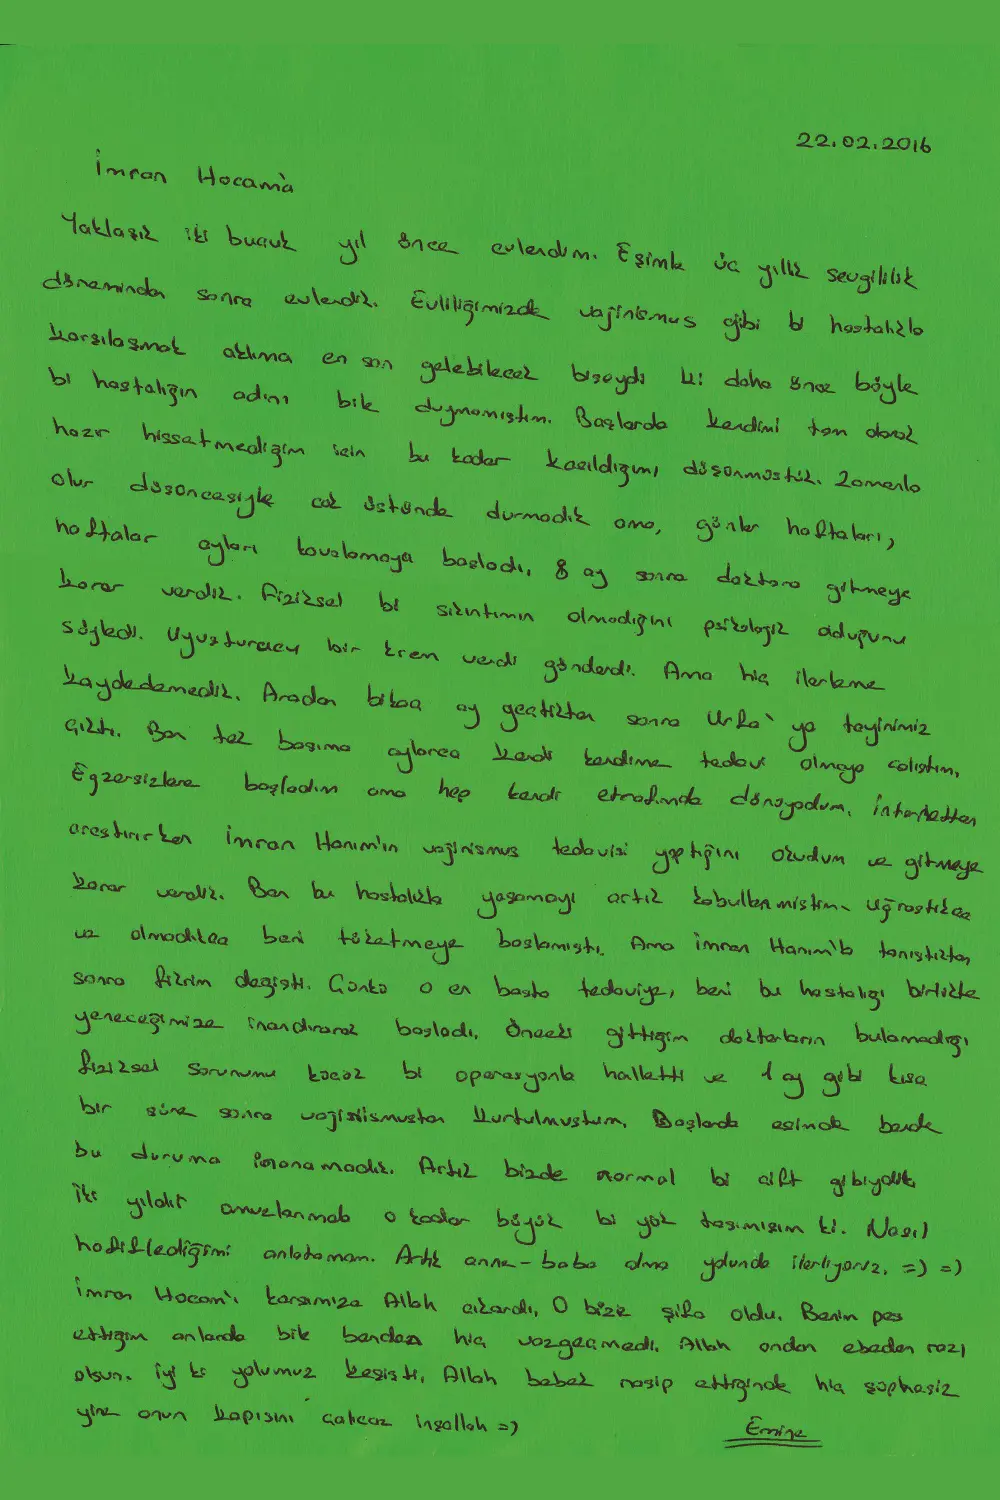 22.02.2016
İmran Hocam'a
Yaklaşık iki buçuk yıl önce evlendim. Eşimle üç yıllık sevgililik
döneminden sonra evlendik. Evliliğimizde vajinismus gibi bi hastalıkla
karşılaşmak aklıma en son gelebilecek bişeydi ki daha önce böyle
bi hastalığın adını bile duymamıştım. Başlarda kendimi tam olarak
hazır hissetmediğim için bu kadar kasıldığımı düşünmüştük. Zamanla
olur düşüncesiyle çok üstünde durmadık ama, günler haftaları,
haftalar ayları kovalamaya başladı. 8 ay sonra doktora gitmeye
karar verdik. Fiziksel bi sıkıntımın olmadığını psikolojik olduğunu
söyledi. Uyuşturucu bir krem verdi gönderdi. Ama hiç ilerleme
kaydedemedik. Aradan bikaç ay geçtikten sonra Urfa'ya tayinimiz
çıktı. Ben tek başıma aylarca kendi kendime tedavi olmaya çalıştım.
Egzersizlere başladım ama hep kendi etrafımda dönüyodum. İnternetten
araştırırken İmran Hanım'ın vajinismus tedavisi yaptığını okudum ve gitmeye
karar verdik. Ben bu hastalıkla yaşamayı artık kabullenmiştim. Uğraştıkça
ve olmadıkça beni tüketmeye başlamıştı. Ama İmran Hanım'la tanıştıktan
sonra fikrim değişti. Çünkü o en başta tedaviye, beni bu hastalığı birlikte
yeneceğimize inandırarak başladı. Önceki gittiğim doktorların bulamadığı
fiziksel sorunumu küçük bi operasyonla halletti ve 1 ay gibi kısa
bir süre sonra vajinismustan kurtulmuştum. Başlarda eşimde bende
bu duruma inanamadık. Artık bizde normal bi çift gibiydik
İki yıldır omuzlarımda o kadar büyük bi yük taşımışım ki. Nasıl
hafiflediğimi anlatamam. Artık anne-baba olma yolunda ilerliyoruz. =) =)
İmran Hocam'ı karşımıza Allah çıkardı, O bize şifa oldu. Benim pes
ettiğim anlarda bile benden hiç vazgeçmedi. Allah ondan ebeden razı
olsun. İyi ki yolumuz kesişti. Allah bebek nasip ettiğinde hiç şüphesiz
yine onun kapısını çalıcaz inşallah =)
Emine